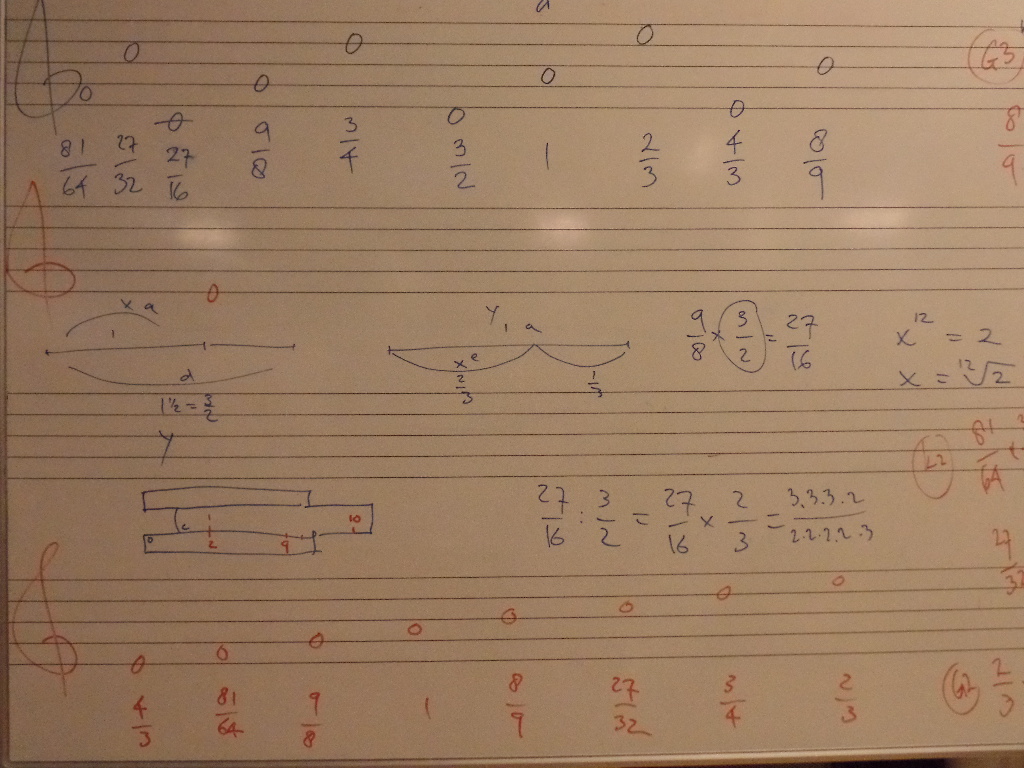 d
G3
81/64 27/32 27/16 9/8 3/4 3/2 1 2/3 4/3 8/9
8/9
x a
1
d
1½ = 3/2
y
y, a
x e
2/3 1/3
9/8 × 3/2 = 27/16
x¹² = 2
x = ¹²√2
81/64
27/16 : 3/2 = 27/16 × 2/3 = 3.3.3.2/2.2.2.2.3
1 10
0 c 2 9
4/3 81/64 9/8 1 8/9 27/32 3/4 2/3
G2 2/3